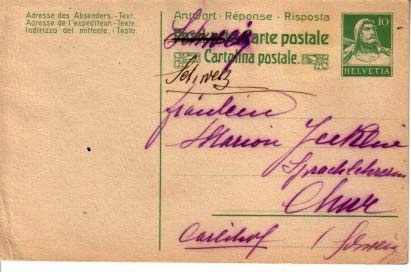 Adresse des Absenders. - Text.
Adresse de l'expéditeur. - Texte.
Indirizzo del mittente. - Testo.
Antwort - Réponse - Risposta
Schweiz
Carte postale
Cartolina postale.
10
HELVETIA
Schweiz
Fräulein
Marion
Sprachlehrerin
Chur
Carlihof / Schweiz